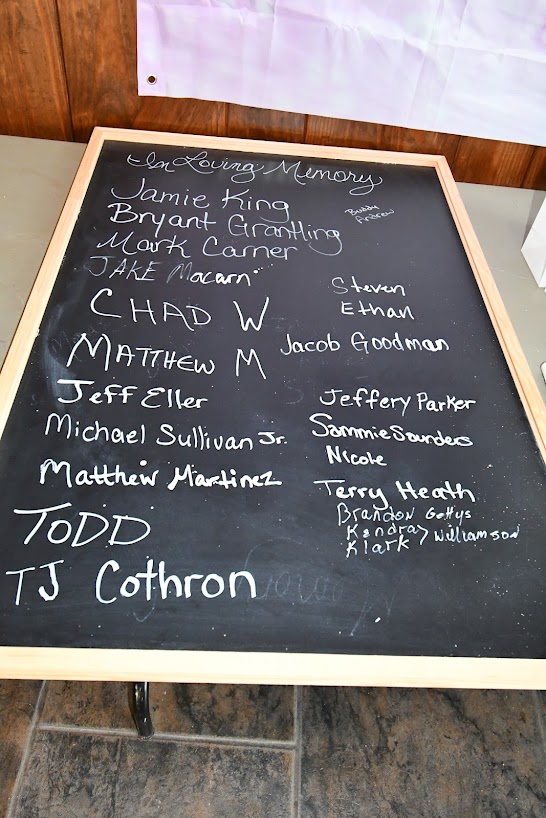 In Loving Memory
Jamie King
Bryant Grantling
Mark Carner
JAKE Macarn
CHAD W
MATTHEW M
Jeff Eller
Michael Sullivan Jr.
Matthew Martinez
TODD
TJ Cothron
Buddy
Andrew
Steven
Ethan
Jacob Goodman
Jeffery Parker
Sammie Saunders
Nicole
Terry Heath
Brandon Gettys
Kendra
Klark
Williamson